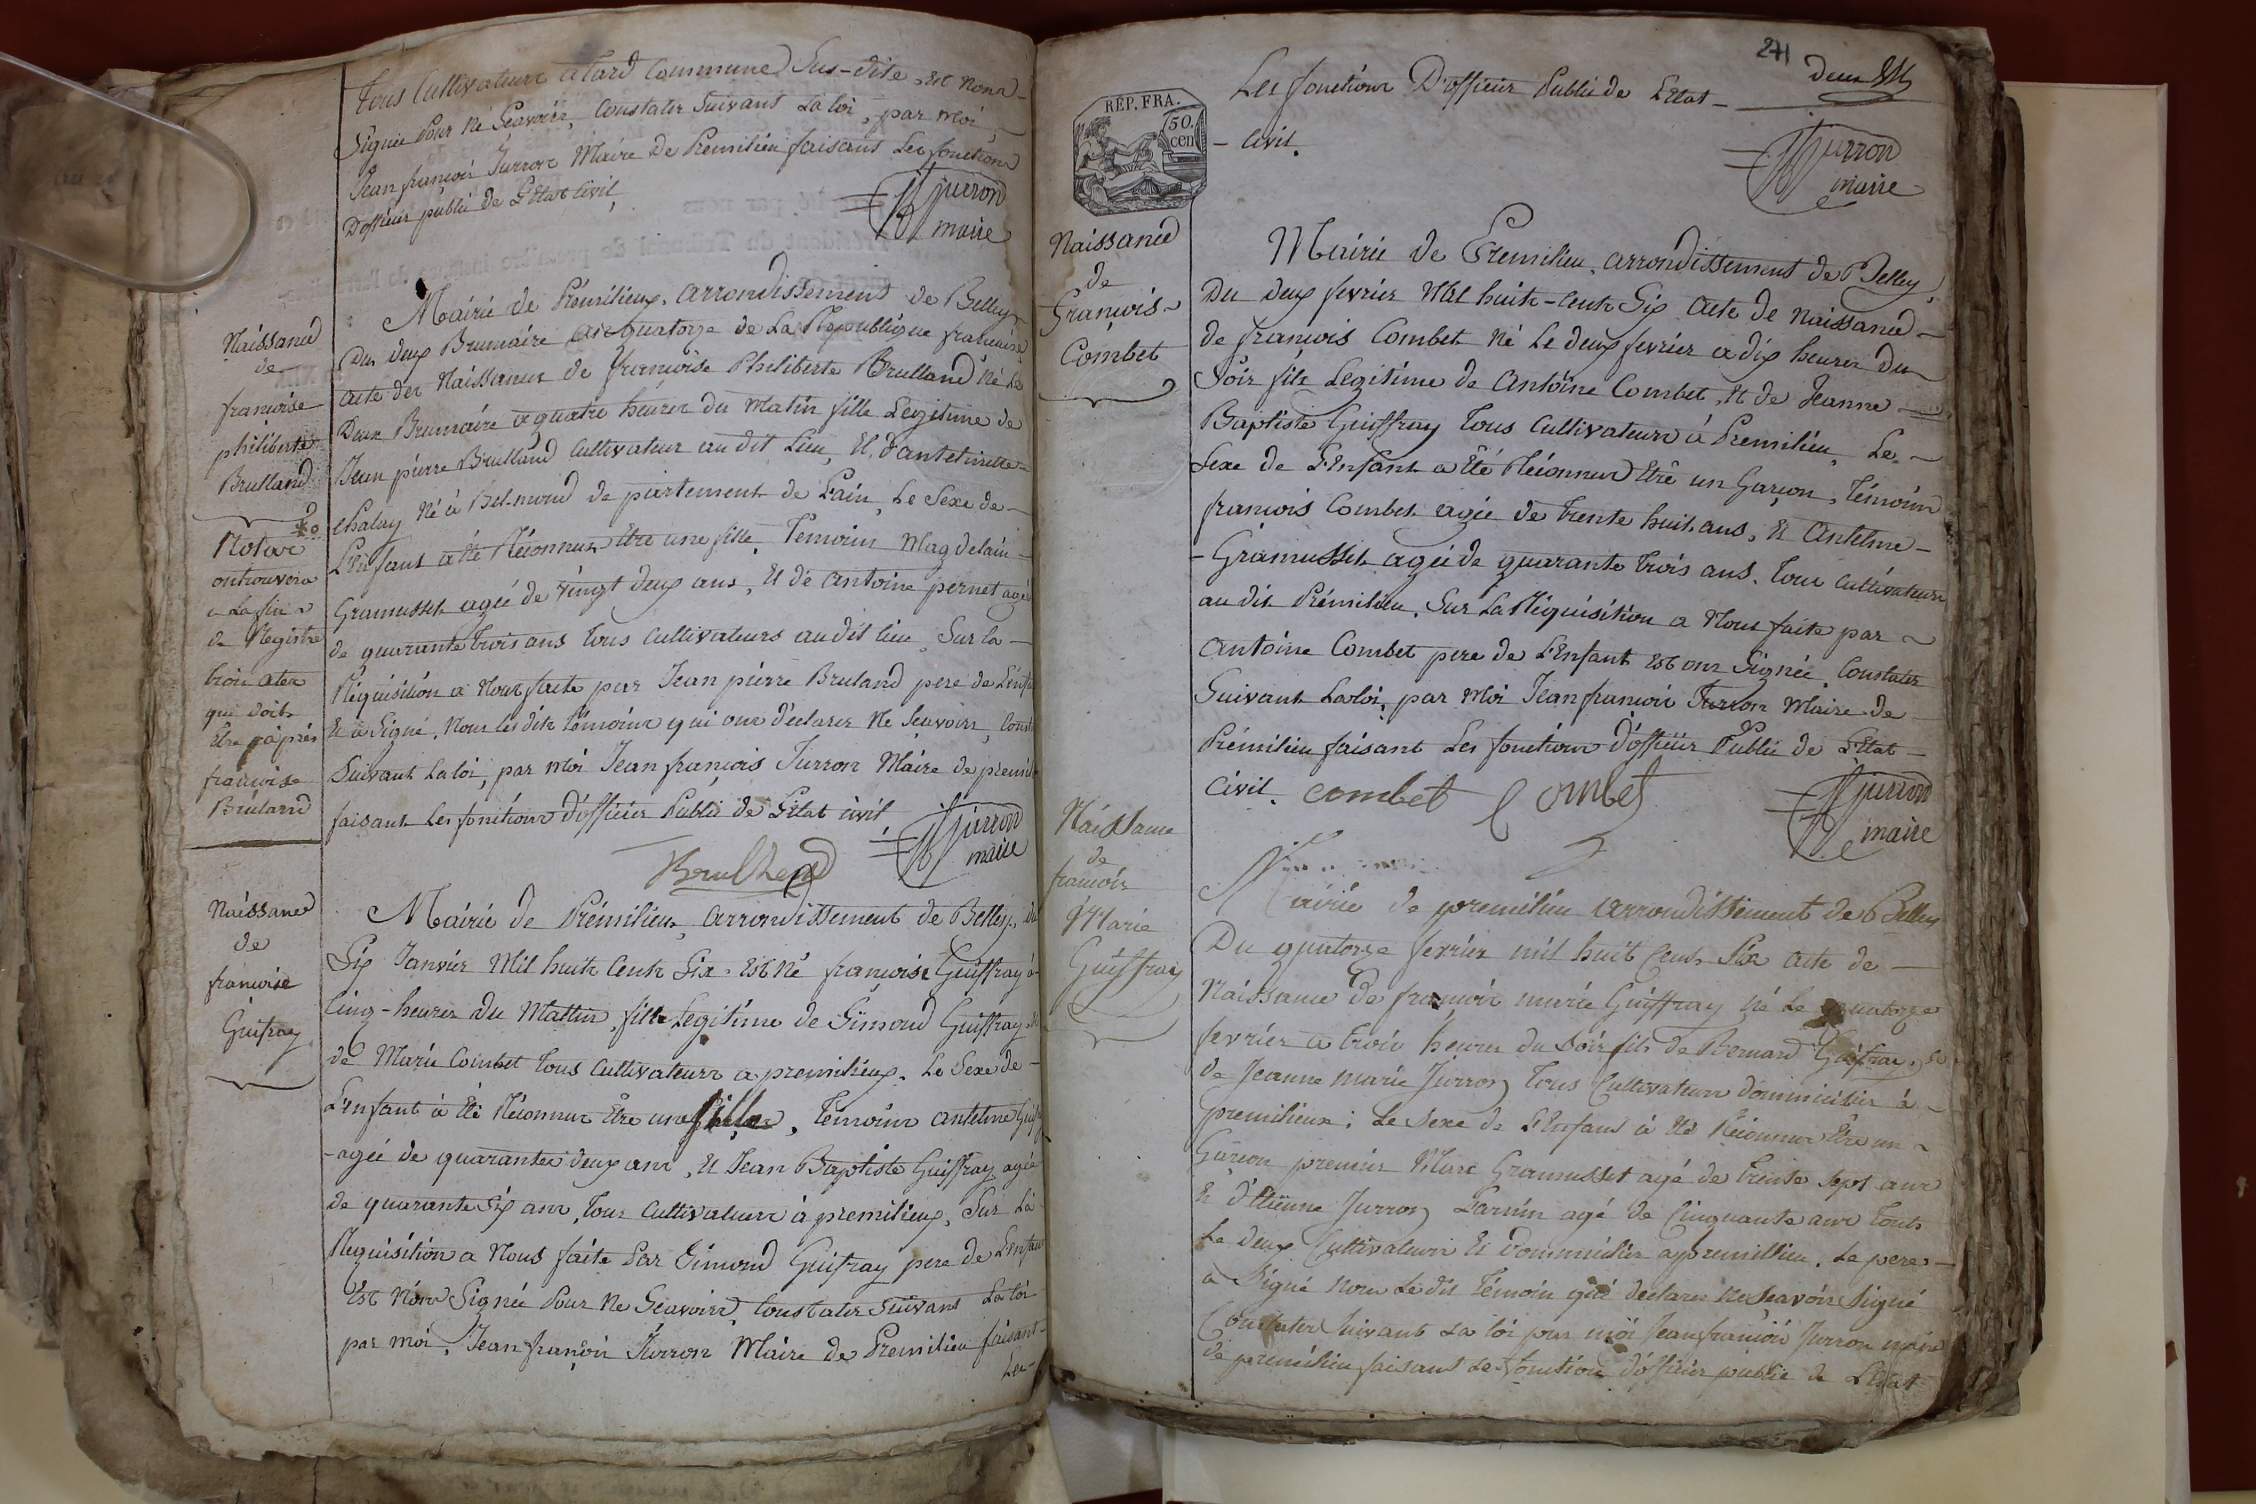 Tous Cultivateurs a Lard Commune Sus-dite, est Nons-
Signée Pour Ne Sçavoire, Constater Suivans La loi, par moi,
Jean françois Jurron Maire de Premilieu faisans Les fonctions
D'offiçier public de L'Etat Civil,
Jurron
maire
Naissance
de
françoise
philiberte
Brulland
Mairie de Prémilieu, arrondissement de Belley
Du deux Brumaire an quatorze de La République française
acte der Naissance de françoise Philiberte Brulland Né Le
Deux Brumaire a quatre heures du Matin fille Legitime de
Jean pierre Brulland Cultivateur au dit Lieu, Et, d'antelmette
Chalay Né à Belmond de partement de Lain, Le Sexe de-
L'enfant a été Réconnur être une fille, Témoins Magdelain-
Gramusset agée de vingt deux ans, Et de antoine pernet agé
de quarante trois ans tous Cultivateurs au dit lieu, Sur la-
Réquisition a Nour faite par Jean pierre Bruland pere de L'enfa
Et à Signé, Nour les dits témoins qui onr déclarer Ne Sçavoir, Const
Suivant La loi, par moi Jean françois Jurron Maire de premili
faisant Les fonctions d'officier Public de L'Etat civil,
Jurron
maire
Brulland
Notar
on trouvera
a La fin
de Régistre
trois ater
qui doit
Etre apprès
françoise
Bruland
Naissance
de
françoise
Guifray
Mairie de Prémilieu, arrondissement de Belley, du
Six Janvier Mil huit Cents Six. Est Né françoise Guiffray à
Cinq-heures du Mattin, fille Legitime de Simond Guiffray, Et
de Marie Combet tous Cultivateurs a premilieux. Le Sexe de-
L'enfant à Eté Réconnur être une fille, Témoins antelme Guif
-agée de quarantes deux anr, Et Jean Baptiste Guiffray agée
de quarante Six anr, tous Cultivateurs à premilieux, Sur La
Requisition a Nous faite Par Simond Guifray pere de L'enfan
Est Nonr Signée Pour Ne Sçavoire, Constater Suivans La loi
par moi, Jean françois Jurron Maire de Premilieu faisant-
Les-
241
deux
RÉP. FRA.
50.
cen
Les fonctions D'officier Public de L'Etat-
-Civil.
Jurron
maire
Naissance
de
François-
Combet
Mairie de Premilieu, arrondissement de Belley,
Du deux fevrier Mil huit-Cents Six acte de Naissance-
de françois Combet Né Le deux fevrier a dix heures Du
Soir fils Legitime de antoine Combet, Et de Jeanne-
Baptiste Guiffray Tous Cultivateurs à Premilieu, Le-
Sexe de L'Enfant a Été Réconnur Etre un Garçon, Témoins
françois Combet agée de Trente huit ans, Et Antelme-
-Gramusset agée de quarante trois ans. tous cultivateurs
au dit Prémilieu, Sur La Réquisition a Nour faite par
antoine Combet pere de L'Enfant Est onr Signée, Constater
Suivant La loi, par Moi Jean françois Jurron Maire de-
Prémilieu faisant Les fonctions d'offiçier Public de L'Etat-
Civil. Combet Combet
Jurron
maire
Naissance
de
françois
Marie
Guiffray
Mairie de premilieu arrondissement de Belley
Du quatorze fevrier mil huit Cents Six acte de-
Naissance de françois marie Guiffray Né Le quatorze
fevrier a trois heures du Soir fils de Bernard Guifray, Et
de Jeanne marie Jurron tous Cultivateurs domiciliés à-
premilieux; Le Sexe de L'Enfant à Eté Réconnur Etre un-
Garçon premier Marc Gramusset agé de trente Sept anr
Et d'Etienne Jurron Parrin agé de Cinquante anr tout
Le deux Cultivateurs Et Dommiciliés a premillieu. Le pere-
a Signé Nonr Le dit Témoin qui déclarer Ne Sçavoir Signé
Constater Suivant La loi par moi Jean françois Jurron maire
de premilieu faisant Le fonctions d'officier public de L'Etat